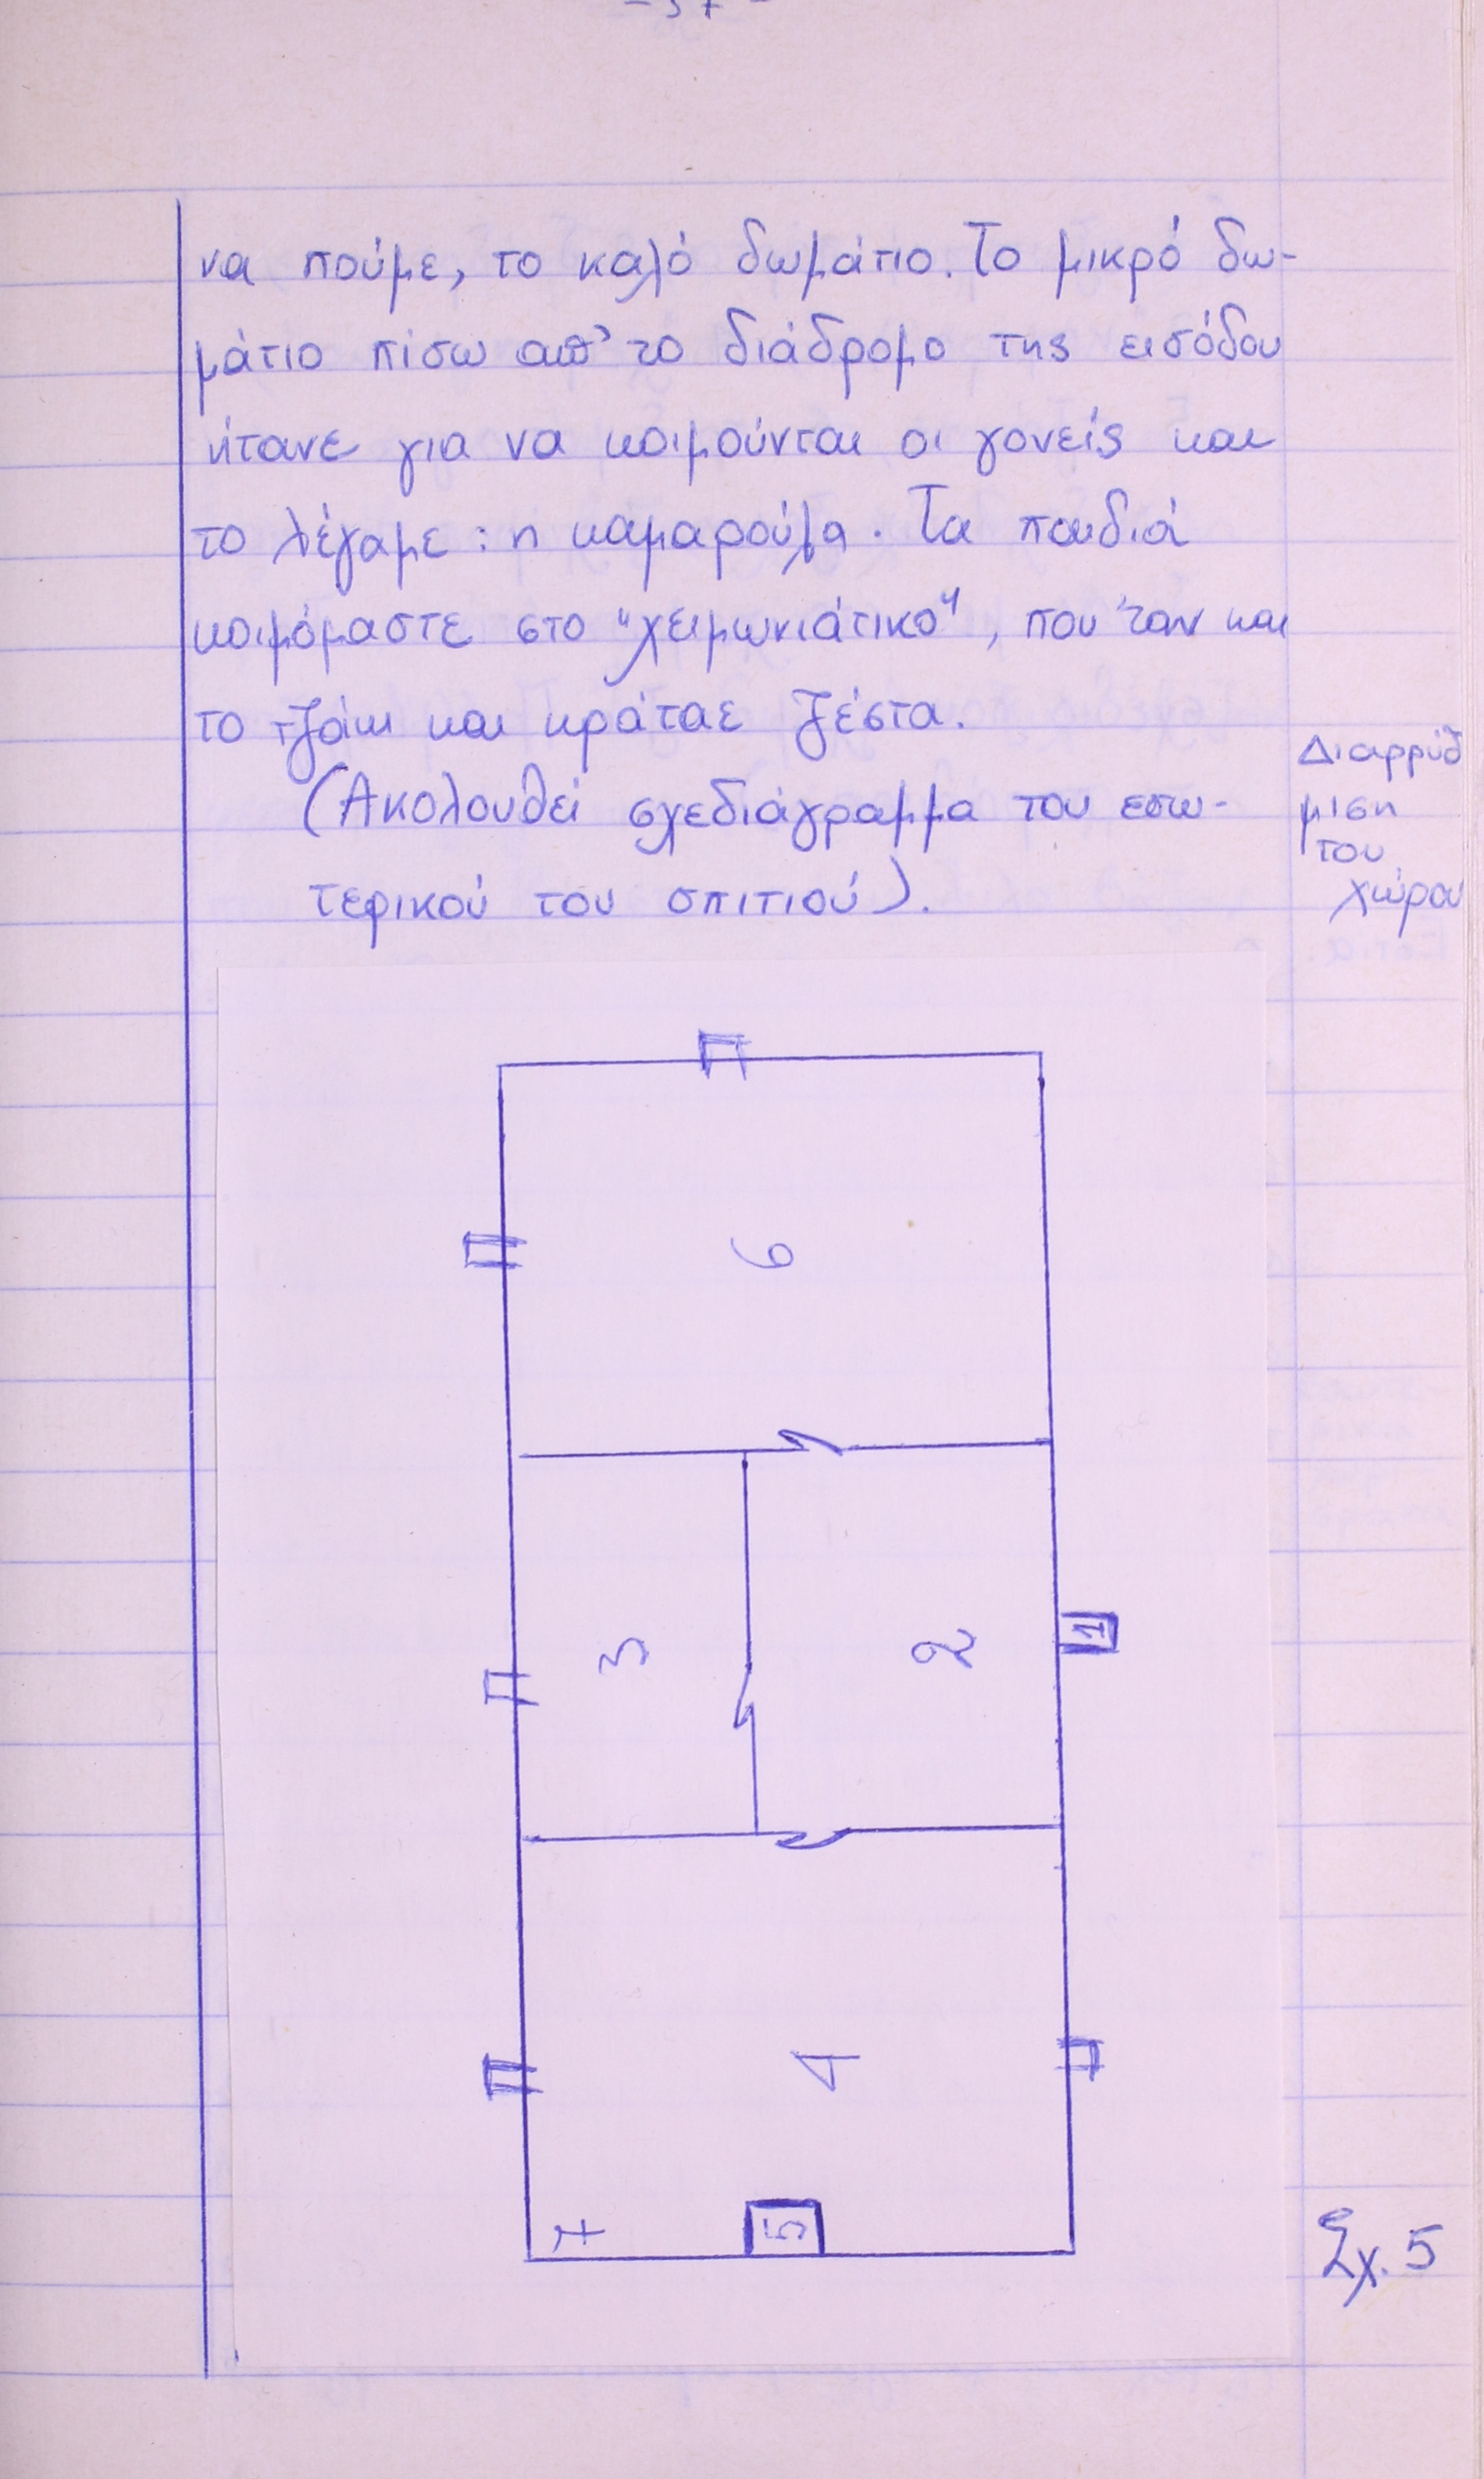 να πούμε, το καλό δωμάτιο. Το μικρό δω-
μάτιο πίσω απ' το διάδρομο της εισόδου
ήτανε για να κοιμούνται οι γονείς και
το λέγαμε : η καμαρούλα. Τα παιδιά
κοιμόμαστε στο "χειμωνιάτικο", που 'ταν και
το τζάκι και κράταε ζέστα.
(Ακολουθεί σχεδιάγραμμα του εσω-
τερικού του σπιτιού).
Διαρρύθ
μιση
του
χώρου
6
3
2
1
4
7
5
Σχ. 5